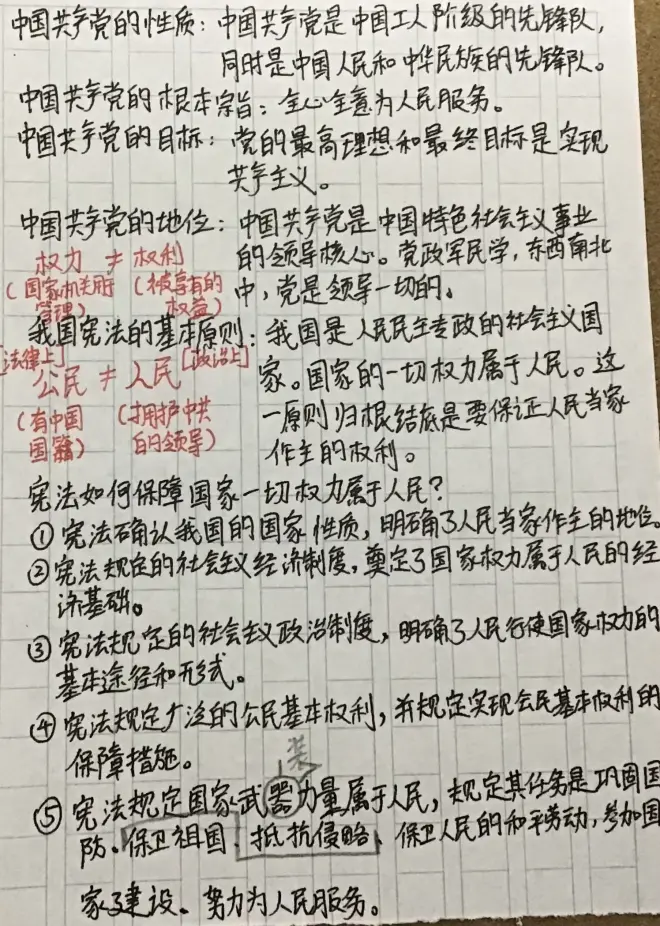 中国共产党的性质：中国共产党是中国工人阶级的先锋队，
同时是中国人民和中华民族的先锋队。
中国共产党的根本宗旨：全心全意为人民服务。
中国共产党的目标：党的最高理想和最终目标是实现
共产主义。
中国共产党的地位：中国共产党是中国特色社会主义事业
的领导核心。党政军民学，东西南北
中，党是领导一切的。
权力 ≠ 权利
(国家机关所 (被享有的
管理) 权益)
我国宪法的基本原则：我国是人民民主专政的社会主义国
家。国家的一切权力属于人民。这
一原则归根结底是要保证人民当家
作主的权利。
[法律上] [政治上]
公民 ≠ 人民
(有中国 (拥护中共
国籍) 的领导)
宪法如何保障国家一切权力属于人民？
①宪法确认我国的国家性质，明确了人民当家作主的地位。
②宪法规定的社会主义经济制度，奠定了国家权力属于人民的经
济基础。
③宪法规定的社会主义政治制度，明确了人民行使国家权力的
基本途径和形式。
④宪法规定广泛的公民基本权利，并规定实现公民基本权利的
保障措施。
装
⑤宪法规定国家武器力量属于人民，规定其任务是巩固国
防、保卫祖国、抵抗侵略、保卫人民的和平劳动，参加国
家建设、努力为人民服务。